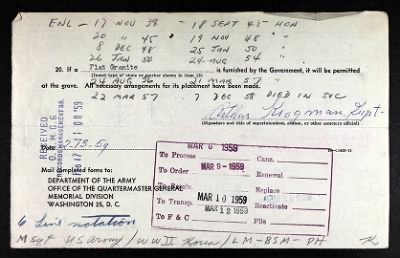 ENL - 17 NOV 38 - 18 SEPT 45 - HON
20 " 45 " 19 NOV 48 "
8 DEC 48 25 JAN 50 "
26 JAN 50 24 AUG 54 "
20. If a Flat Granite is furnished by the Government, it will be permitted
(Insert type of stone or marker shown in item 13)
24 AUG 56 21 MAR 57 "
at the grave. All necessary arrangements for its placement have been made.
22 MAR 57 7 DEC 58 DIED IN SVC
Arthur Krogman, Supt-
(Signature and title of superintendent, sexton, or other cemetery official)
RECEIVED
O.Q.M.G.
Date 2-73-59
Mail completed forms to:
DEPARTMENT OF THE ARMY
OFFICE OF THE QUARTERMASTER GENERAL
MEMORIAL DIVISION
WASHINGTON 25, D. C.
MAR 6 1959
To Process Canc.
To Order MAR 9 - 1959 Renewal
To Rev. Replace
To Transp. MAR 10 1959 Reactivate
To F & C MAR 12 1959 File
6 Line notation
M Sgt US Army / WW II Korea / LM - BSM - PH